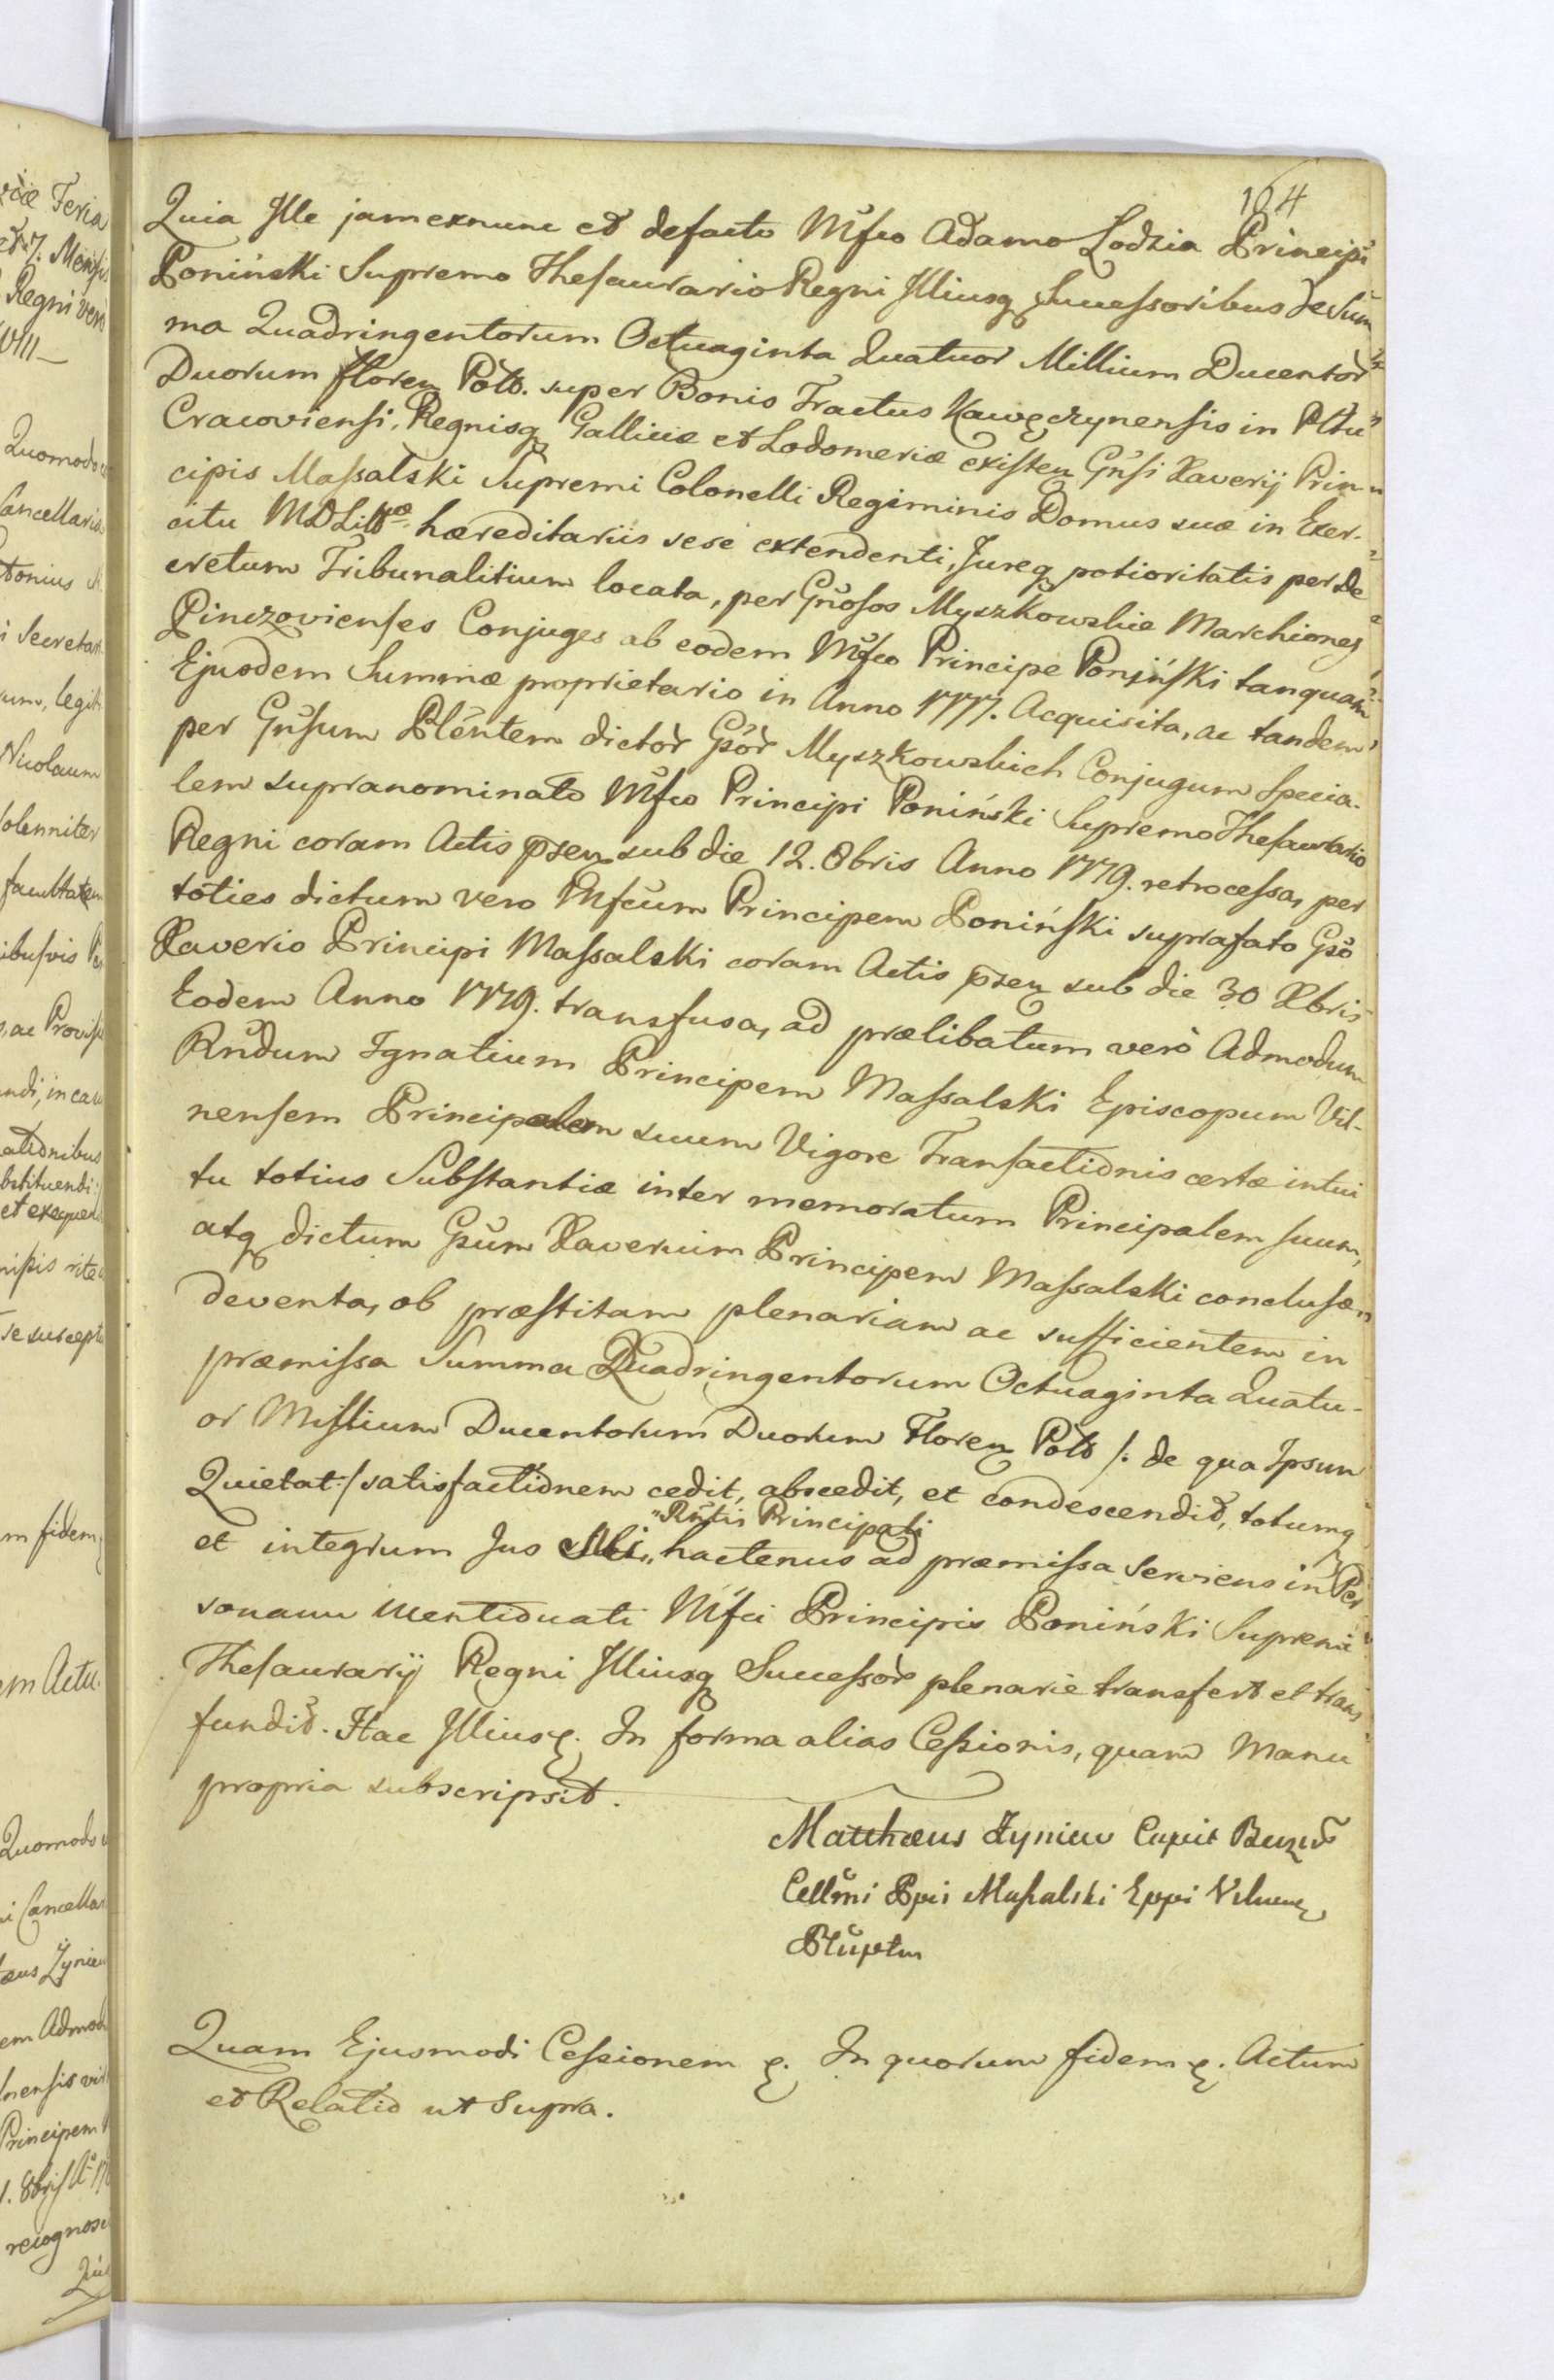 104
Quia Ille jam exnunc et defacto Mfco Adamo Lodzia Principi
Poniński Supremo Thesaurario Regni Illiusq Successoribus de Sum
ma Quadringentorum Octuaginta Quatuor Millium Ducentor
Duorum floren Polo. super Bonis Tractus Kawęczynensis in Pltu
Cracoviensi, Regnisq Galliciæ et Lodomeriæ existen Gnsi Xaverij Prin
cipis Massalski Supremi Colonelli Regiminis Domus suæ in Exer-
citu MDLittvæ hæreditariis sese extendenti, Jureq potioritatis per De
cretum Tribunalitium locata, per Gnosos Myszkowskie Marchiones
Pinczovienses Conjuges ab eodem Mfco Principe Poniński tanquam
Ejusdem Summæ proprietario in Anno 1777. Acquisita, ac tandem
per Gnsum Plentem dictor Gsor Myszkowskich Conjugum Specia-
lem supranominato Mfco Principi Poniński Supremo Thesaurario
Regni coram Actis psen sub die 12. 8bris Anno 1779. retrocessa, per
toties dictum vero Mfcum Principem Poniński suprafato Gso
Xaverio Principi Massalski coram Actis psen sub die 30 Xbris
Eodem Anno 1779. transfusa, ad prælibatum verò Admodum
Rndum Ignatium Principem Massalski Episcopum Vil-
nensem Principalem suum Vigore Transactionis certæ intui
tu totius Substantiæ inter memoratum Principalem suum,
atq dictum Gsum Xaverium Principem Massalski conclusæ
deventa, ob præstitam plenariam ac sufficientem in
præmissa Summa Quadringentorum Octuaginta Quatu-
or Millium Ducentorum Duorum Floren Polo /: de qua Ipsum
Quietat :/ satisfactionem cedit, abscedit, et condescendit, totumq
"Rntis Principali
et integrum Jus Sibi" hactenus ad præmissa serviens in Per
sonam mentionati Mfci Principis Poniński Supremi
Thesaurarij Regni Illiusq Successor plenarie transfert et trans
fundit. Hac Illiusq. In forma alias Cessionis, quam Manu
propria subscripsit.
Matthæus Żyniew
Cellmi Ppis Massalski Eppi Vilnen
Quam Ejusmodi Cessionem . In quorum fidem . Actum
et Relatio ut Supra.